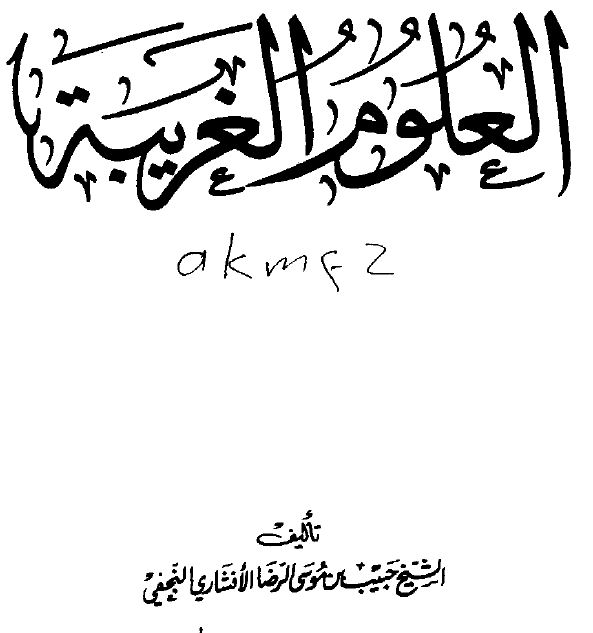 العلوم الغريبة
akmez
تأليف
الشيخ حبيب بن موسى الرضا الأفشاري النجفي